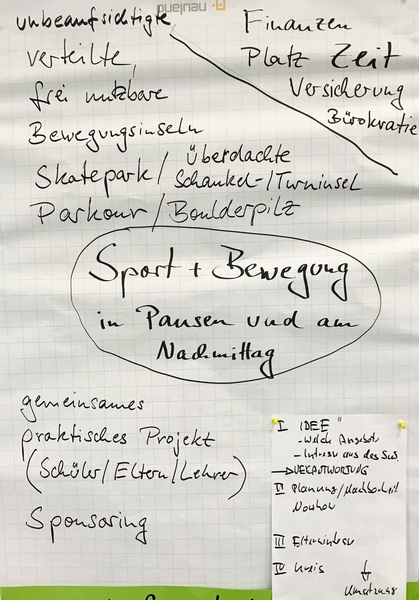 neuland
unbeaufsichtigte,
verteilte,
frei nutzbare
Bewegungsinseln
Skatepark/ Überdachte
Schaukel-/Turninsel
Parkour/Boulderpilz
Finanzen
Platz Zeit
Versicherung
Bürokratie
Sport + Bewegung
in Pausen und am
Nachmittag
gemeinsames
praktisches Projekt
(Schüler/Eltern/Lehrer)
Sponsoring
I IDEE
- Welche Angebote
- Interesse aus des SuS
→ VERANTWORTUNG
II Planung/
III
IV Kreis
Umsetzung